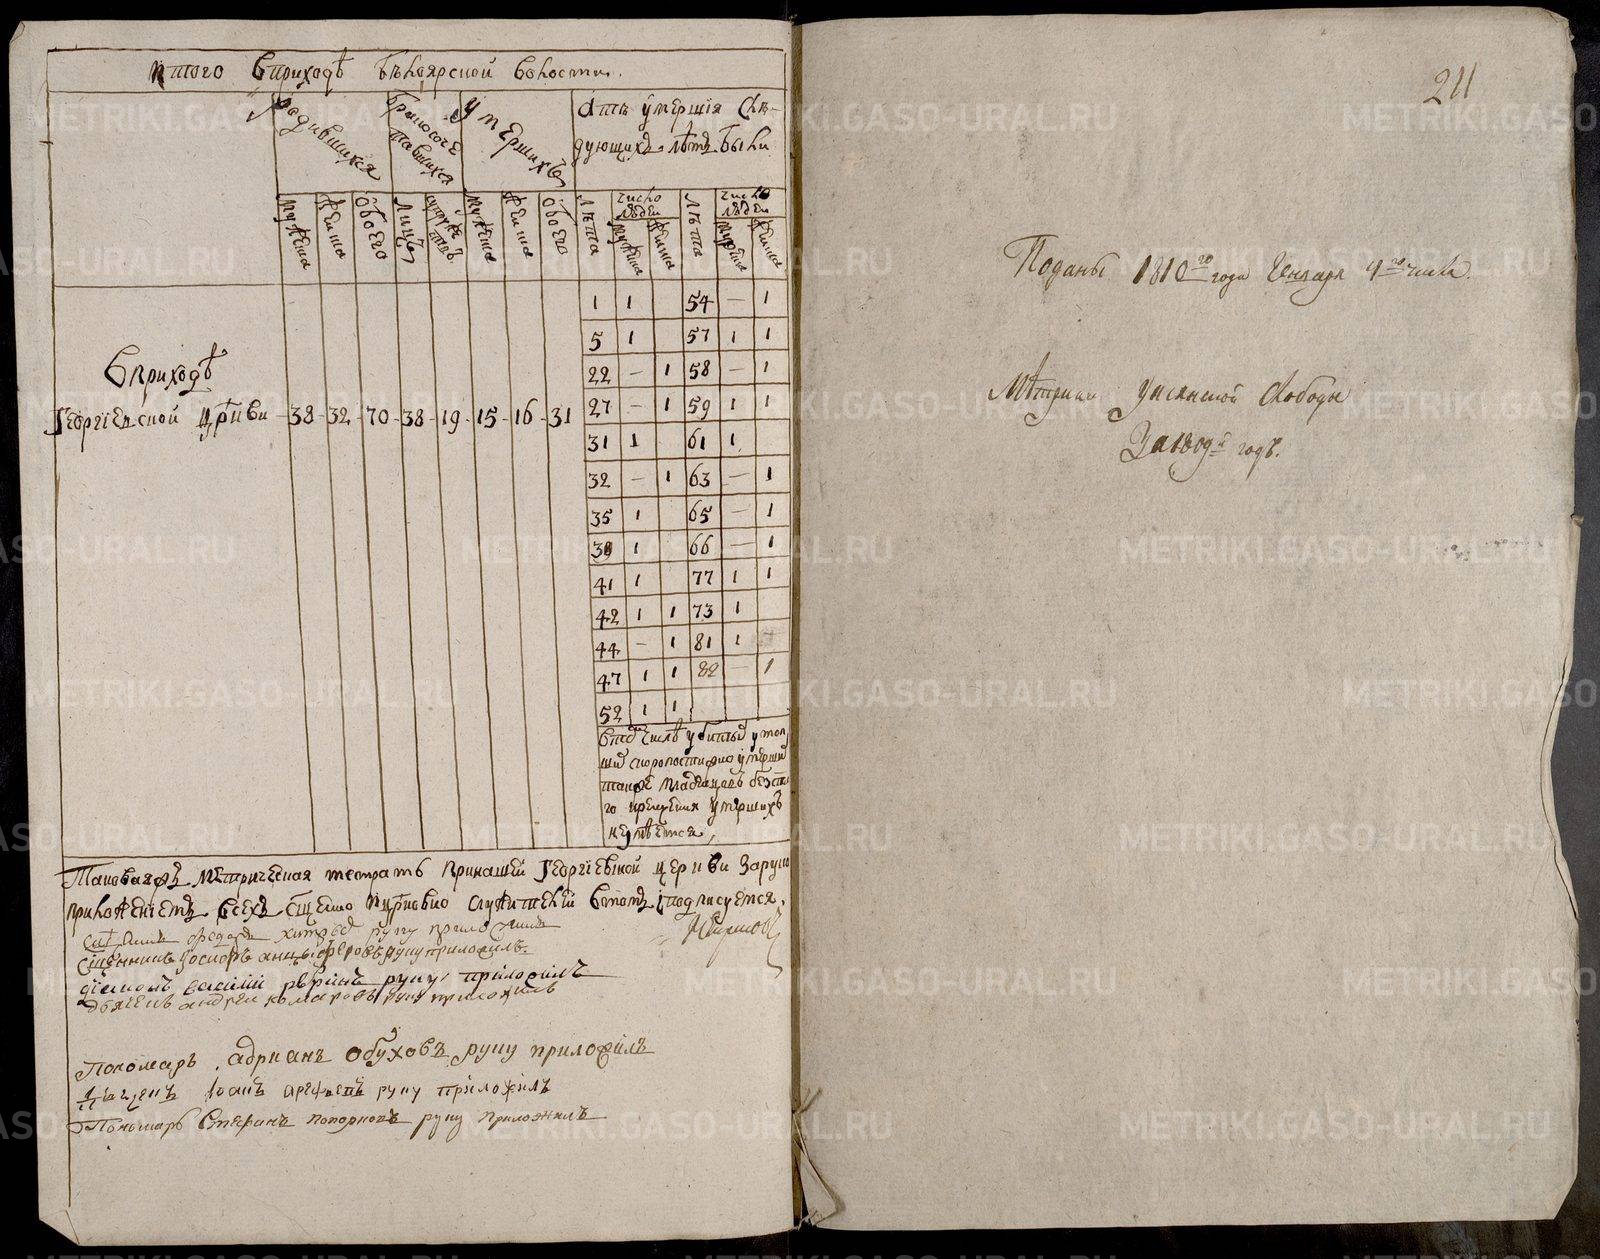 Итого Вприходѣ Бѣлоярской волости.
родившихся
бракосоче
тавшихся
умершихъ
Атѣ умершія Слѣ-
дующихъ лѣтъ были
мужеска
женска
обоего
Лицъ
супружествъ
мужеска
женска
обоего
лѣта
число людей
мужеска
женска
лѣта
число людей
мужеска
женска
Вприходѣ
Георгіевской церкви 38 32 70 38 19 15 16 31
1 1 54 — 1
5 1 57 1 1
22 — 1 58 — 1
27 — 1 59 1 1
31 1 61 1
32 — 1 63 — 1
35 1 65 — 1
39 1 66 — 1
41 1 77 1 1
42 1 1 73 1
44 — 1 81 1
47 1 1 82 — 1
52 1 1
числѣ убитыхъ утоп
шихъ скоропостижно умерши
также младенцовъ безъ
го крещения умершихъ
неимѣется,
Таковаяжъ Метрическая тетрать принашей Георгіевской церкви Заруко
приложениемъ всехъ священно церковно служителей Втомъ подписуется,
руку приложилъ
священникъ руку приложилъ
діаконъ василий руку приложилъ
дьячекъ андрей комаровъ руку приложилъ
Пономарь адрианъ обуховъ руку приложилъ
дьячекъ Іоанъ арефьевъ руку приложилъ
Пономарь Стефанъ попорковъ руку приложилъ
211
Поданы 1810го года Генваря 4го числа.
Метрики Уксянской слободы
За 1809й годъ.
METRIKI.GASO-URAL.RU